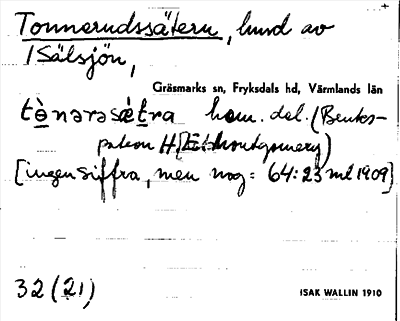 Tonnerudssätern, hund av
/ Sälsjön,
Gräsmarks sn, Fryksdals hd, Värmlands län
hem. del. (Bruks-
patron H. E. Montgomery)
[ingen siffra, men nog = 64:23 ml 1909]
32 (21)
ISAK WALLIN 1910